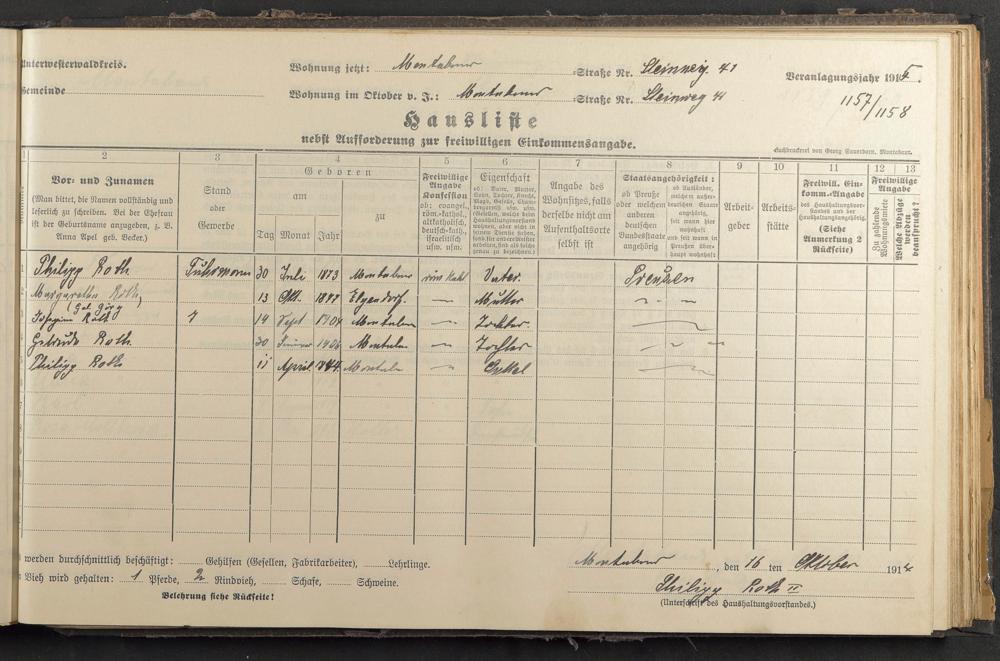 Unterwesterwaldkreis.
Wohnung jetzt: Montabaur Straße Nr. Steinweg 41
Veranlagungsjahr 1915.
Gemeinde
Wohnung im Oktober v. J.: Montabaur Straße Nr. Steinweg 41
1157/1158
Hausliste
nebst Aufforderung zur freiwilligen Einkommensangabe.
Buchdruckerei von Georg Sauerborn, Montabaur.
2 3 4 5 6 7 8 9 10 11 12 13
Vor- und Zunamen
(Man bittet, die Namen vollständig und leserlich zu schreiben. Bei der Ehefrau ist der Geburtsname anzugeben, z. B. Anna Apel geb. Becker.)
Stand oder Gewerbe
Geboren
am
zu
Tag Monat Jahr
Freiwillige Angabe Konfession
ob: evangel., röm.-kathol., altkatholisch, deutsch-kath., israelitisch usw. usw.
Eigenschaft
ob: Vater, Mutter, Sohn, Tochter, Knecht, Magd,
Angabe des Wohnsitzes, falls derselbe nicht am Aufenthaltsorte selbst ist
Staatsangehörigkeit:
ob Preuße oder welchem anderen deutschen Bundesstaate angehörig
ob Ausländer, welchem außerdeutschen Staate angehörig, seit wann hier wohnhaft und seit wann in Preußen überhaupt wohnhaft
Arbeitgeber
Arbeitsstätte
Freiwill. Einkomm.-Angabe des Haushaltungsvorstandes und der Haushaltungsangehörig. (Siehe Anmerkung 2 Rückseite)
Freiwillige Angabe
Zu zahlende Wohnungsmiete
Welche Abzüge werden beansprucht?
Philipp Roth Fuhrmann 30 Juli 1873 Montabaur röm kath Vater. Preußen
Margaretha Roth, 13 Okt. Elgendorf. — Mutter
Roth 14 Sept 1904 Montabaur — Tochter.
Gertrude Roth 30 1906 Montabaur — Tochter
Philipp Roth 11 April Montabaur —
werden durchschnittlich beschäftigt: Gehilfen (Gesellen, Fabrikarbeiter), Lehrlinge.
Vieh wird gehalten: 1 Pferde, 2 Rindvieh, Schafe, Schweine.
Belehrung siehe Rückseite!
Montabaur, den 16 ten Oktober 1914
Philipp Roth II
(Unterschrift des Haushaltungsvorstandes.)